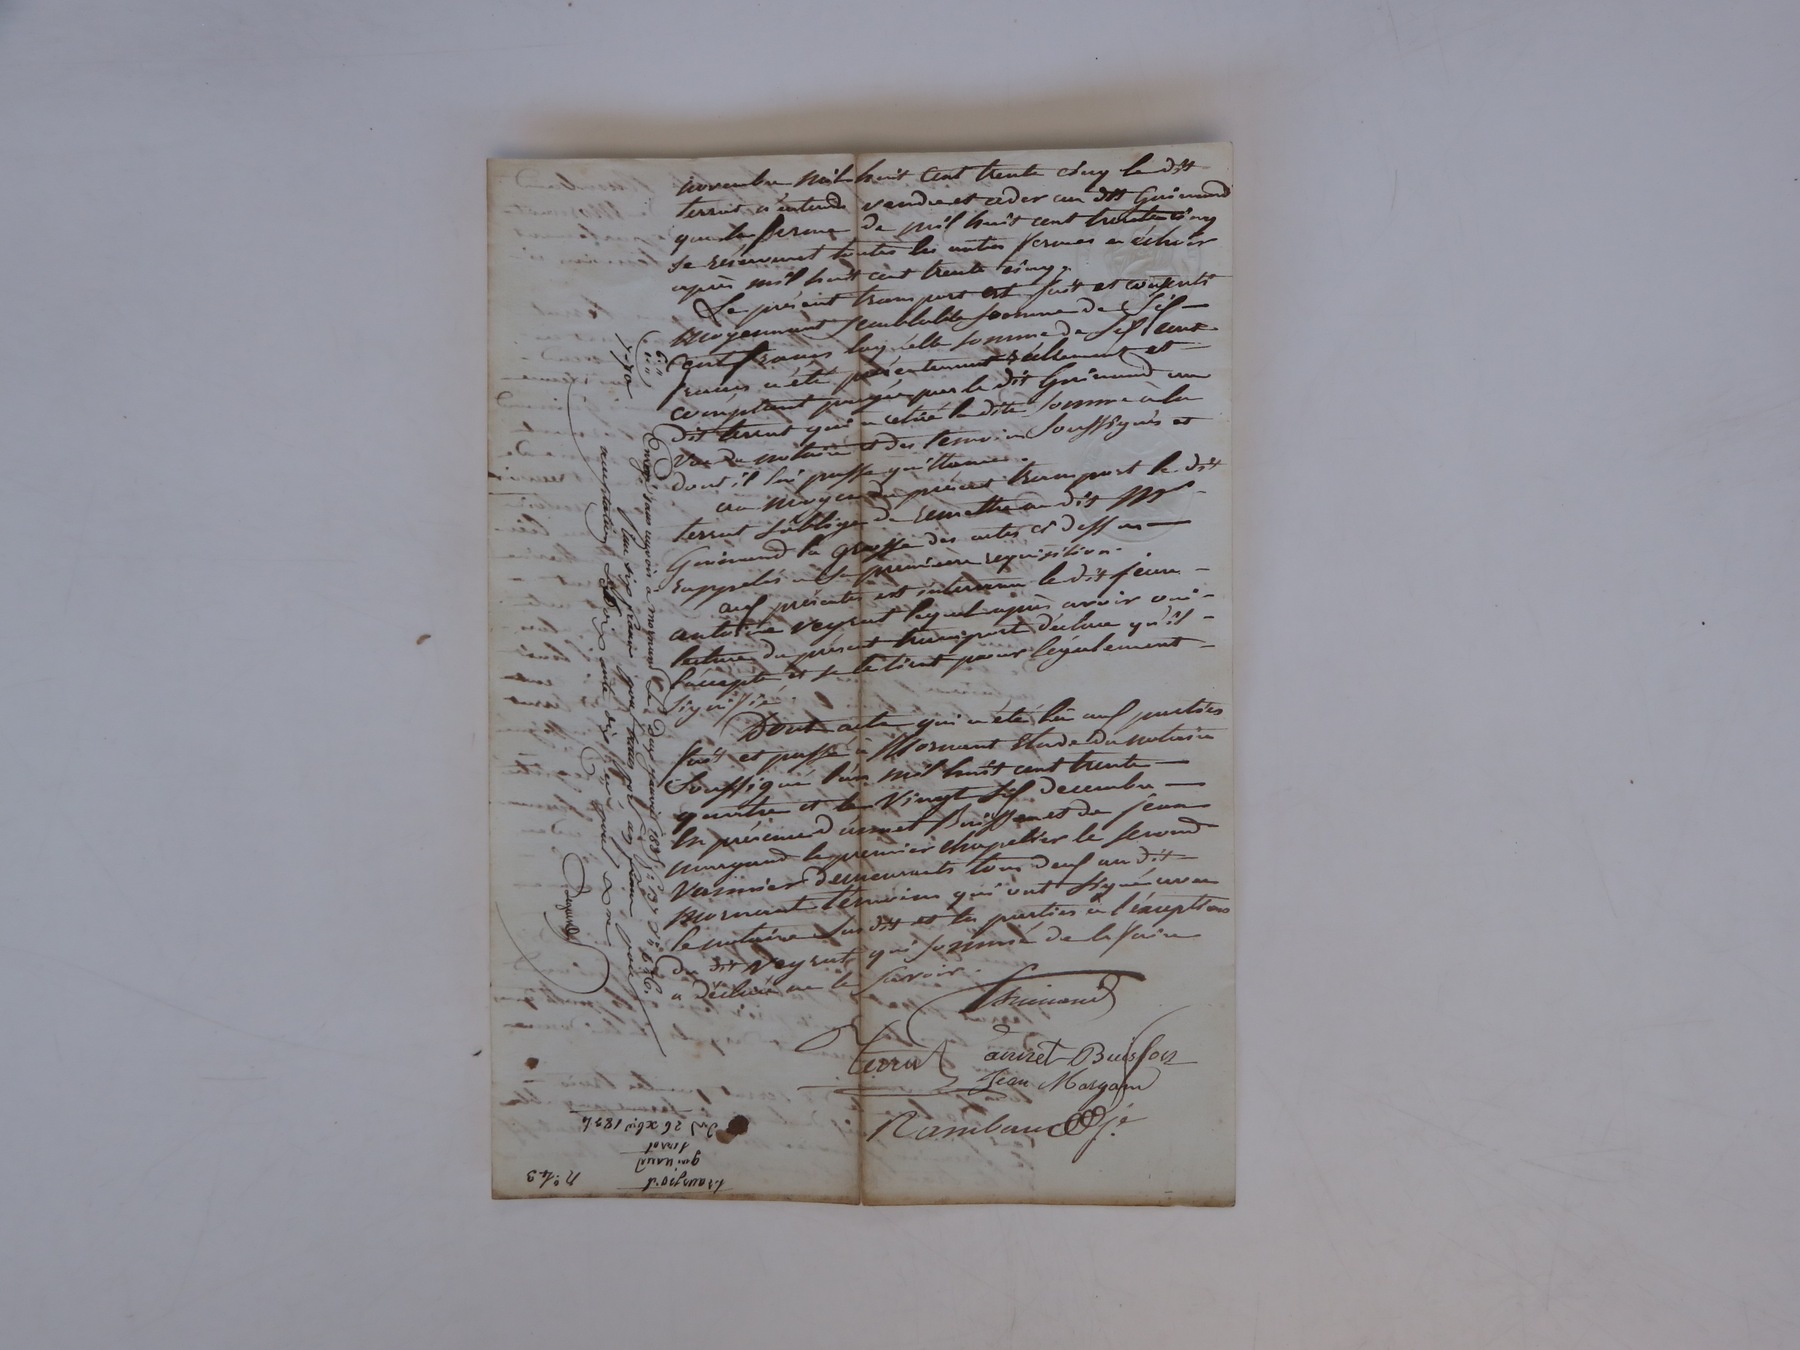 novembre mil huit cent trente cinq le dit
terrut n'entend vendre et ceder au dit Guinand
que la ferme de mil huit cent trente cinq
se reservant toutes les autres fermes a echoir
après mil huit cent trente cinq.
Le présent transport est fait et consenti
moyennant semblable somme de
cent francs laq'elle somme de cent
francs a été présentement réellement et
comptant payée par le dit Guinand au
dit terrut qui a retiré la dite somme a la
vue du notaire et des temoins soussignés et
dont il lui passe quittance.
au moyen du présent transport le dit
terrut s'oblige de remettre au dit Mr
Guinand la grosse des actes ci dessus
rappelés a sa premiere requisition.
aux présentes est intervenu le dit jean
antoine veyrut lequel après avoir oui
lecture du présent transport déclare qu'il
l'accepte et se le tient pour légalement
signifié.
Dont acte qui a été lu aux parties
fait et passé à Mornant Etude du notaire
soussigné l'an mil huit cent trente
quatre et le vingt six decembre
En présence d'annet Buisson et de jean
margand le premier chapelier le second
vannier demeurants tous deux au dit
mornant témoins qui ont signé avec
le notaire sus dit et les parties à l'exception
du dit veyrut qui sommé de le faire
a déclaré ne le savoir.
Guinand
terrut annet Buisson
Jean Margand
Rambaud
Enregistré a mornant Le Deux janvier 1835 f. 37
nº 43
transport
guinand
terrut
Du 26 xbre 1834